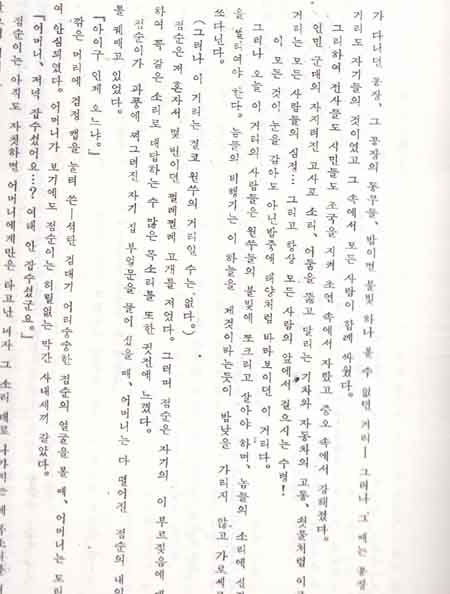 가 다니던 공장, 그 공장의 동무들, 밤이면 불빛 하나 볼 수 없던 거리— 그러나 그 때는 공장
기리도 자기들의 것이였고 그 속에서 모든 사람이 함께 싸웠다.
그리하여 전사들도 시민들도 조국을 지켜 초연 속에서 자랐고 증오 속에서 강해졌다.
인민 군대의 자지러진 고사포 소리, 어둠을 뚫고 달리는 기차와 자동차의 고동, 횃불처럼 이글
거리는 모든 사람들의 심정… 그리고 항상 모든 사람의 앞에서 걸으시는 수령!
이 모든 것이 눈을 감아도 아닌밤중에 태양처럼 바라보이던 이 거리다.
그러나 오늘 이 거리의 사람들은 원쑤들의 불빛에 쪼크리고 살아야 하며, 놈들의 소리에
을 썰리여야 한다. 놈들의 비행기는 이 하늘을 제것이라는듯이 밤낮을 가리지 않고 가로세
쏘다닌다.
(그러나 이 거리는 결코 원쑤의 거리일 수는 없다.)
점순은 제 혼자서 몇 번이던 쩔레쩔레 고개를 저었다. 그러며 점순은 자기의 이 부르짖음에
하여 똑 같은 소리로 대답하는 수 많은 목소리를 또한 귓전에 느꼈다.
점순이가 파풍에 찌그러진 자기 집 부엌문을 들어 섰을 때, 어머니는 다 떨어진 점순의 내의
를 꿰매고 있었다.
『아이구 인제 오느냐.』
깎은 머리에 검정 캡을 눌러 쓴— 석탄 검대기 어리숭숭한 점순의 얼굴을 볼 때, 어머니는
여 안심되였다. 어머니가 보기에도 점순이는 허릴없는 막간 사내새끼 같았다.
『어머니, 저녁 잡수셨어요…? 여태 안 잡수셨군요。』
점순이는 아직도 자칫하면 어머니에게만은 타고난 녀자 그 소리 대로 나가지는